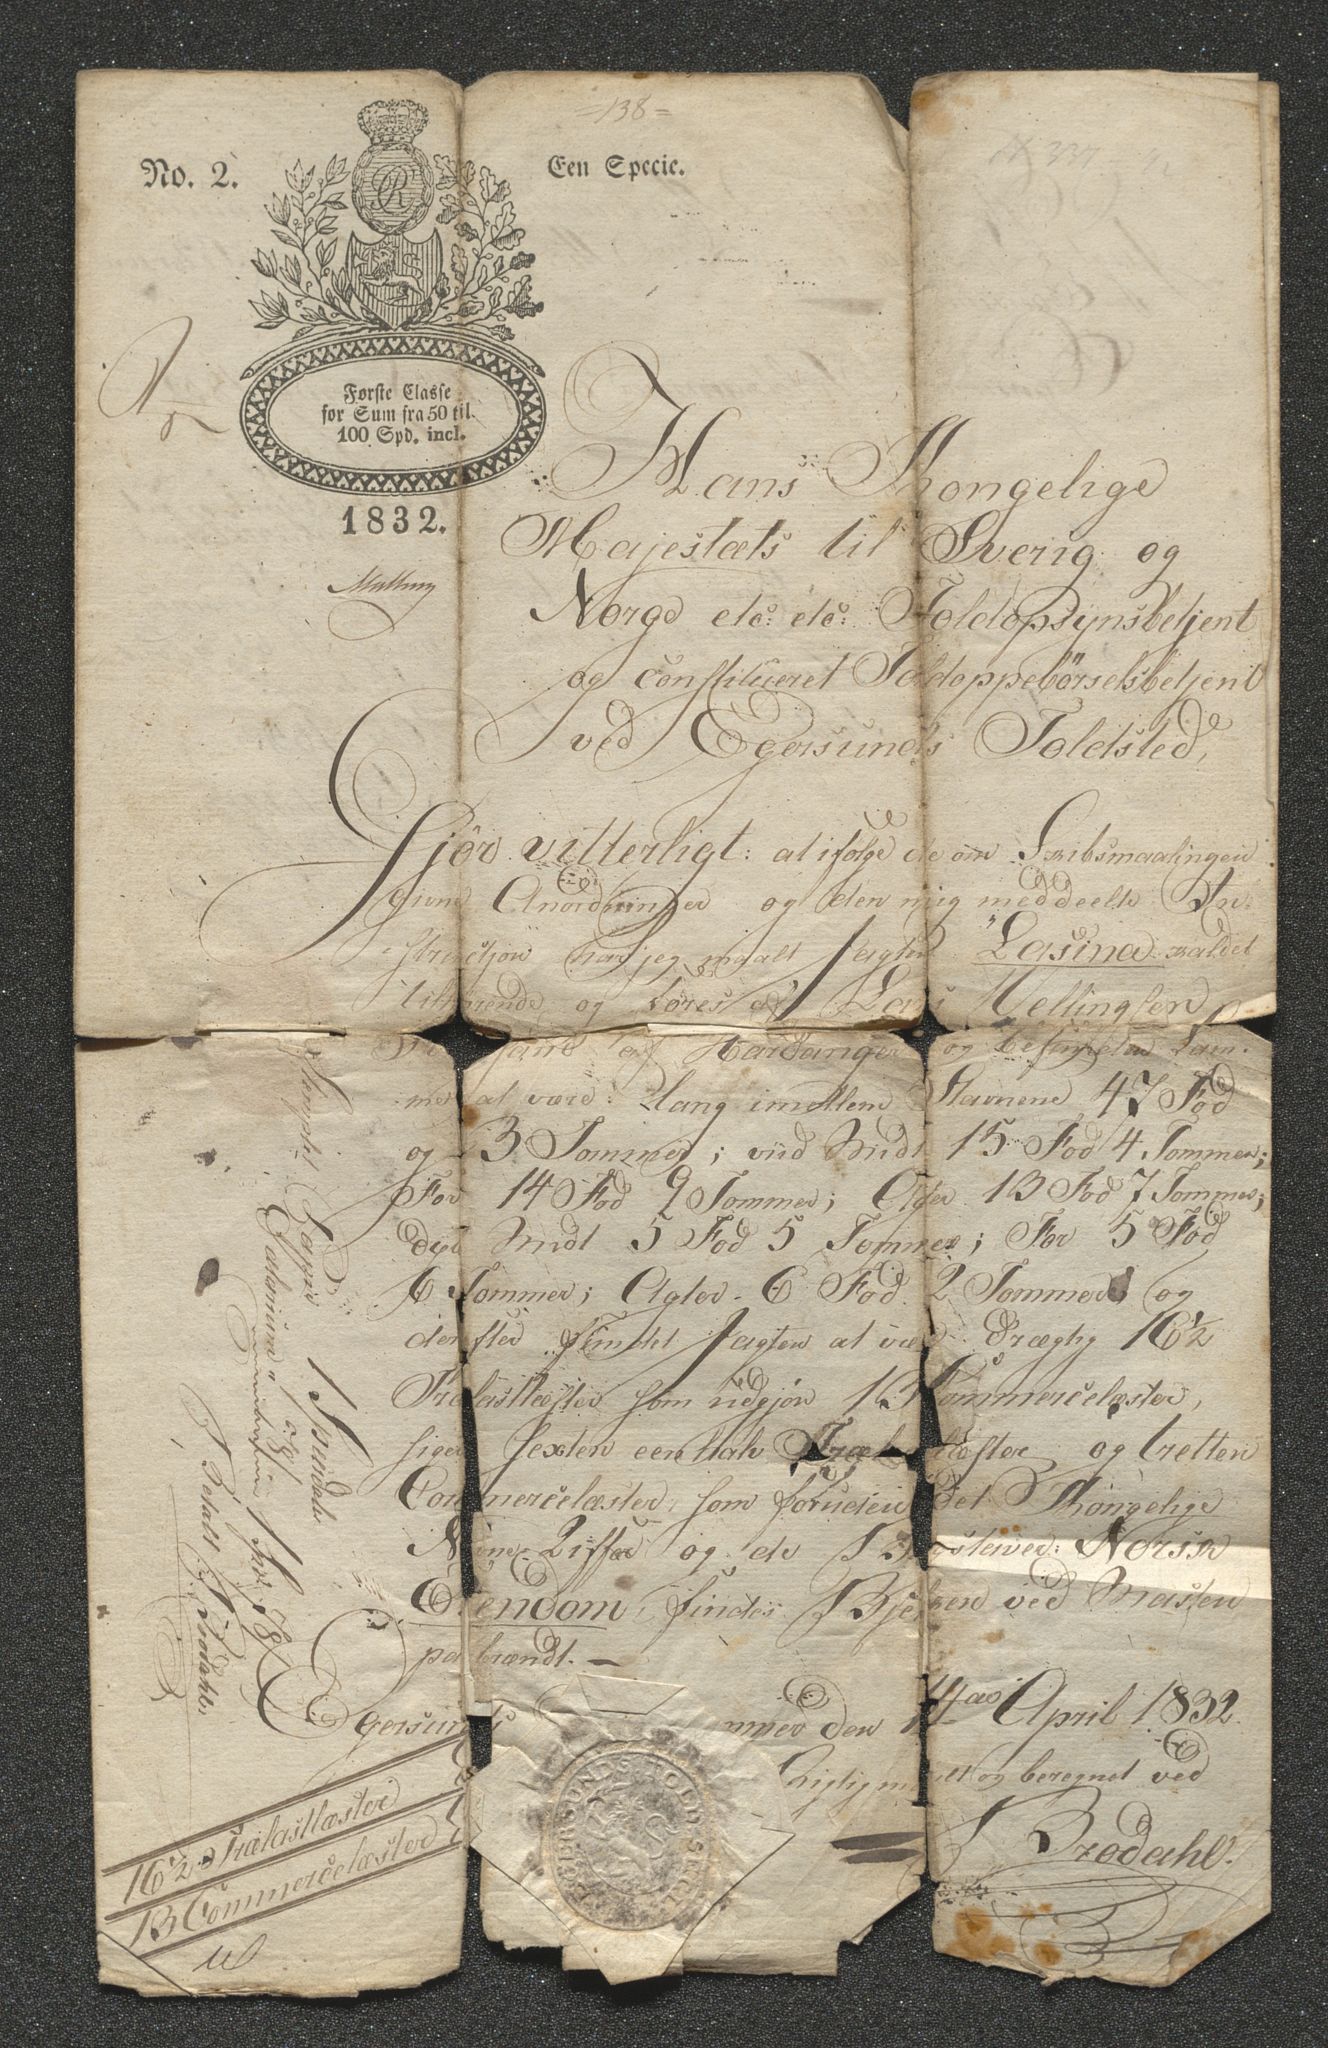 =138=
No. 2.
Een Specie.
R
Første Classe
for Sum fra 50 til
100 Spd. incl.
1832.
Hans Kongelige
Majestæts til Sverig og
Norge etc: etc: Toldopsynsbetjent
og constitueret Toldoppebörselsbetjent
ved Egersunds Toldsted,
Gjör vitterligt: at ifølge de om Skibsmaalingen
givne Anordninger og den mig meddeelte In-
struction har jeg maalt Jagten "Lasina kaldet
tilhørende og føres af Lars Mellingsen
af Hardanger og befunden sam-
me at være: lang imellem Stavnene 47 Fod
og 3 Tommer; viid Midt 15 Fod 4 Tommer;
For 14 Fod 9 Tommer; Agter 13 Fod 7 Tommer;
dyb Midt 5 Fod 5 Tommer; For 5 Fod
6 Tommer; Agter 6 Fod 2 Tommer og
derefter findes Jagten at være drægtig 16½
Trælastlæster som udgjör 13 Commercelæster,
siger sexten een halv Trælastlæster og tretten
Commercelæster, som foruden det Kongelige
Navne Ziffer og de Bogstaver: Norsk
Eiendom, findes i Bjelken ved Masten
paabrændt. —
Egersunds den 14de April 1832.
Rigtig maalt og beregnet ved
Brodahl.
EGERSUNDS TOLDSTED
Stemplet Papir 1 Specidaler
Betalt
Brodahl
16½ Trælastlæster
13 Commercelæster